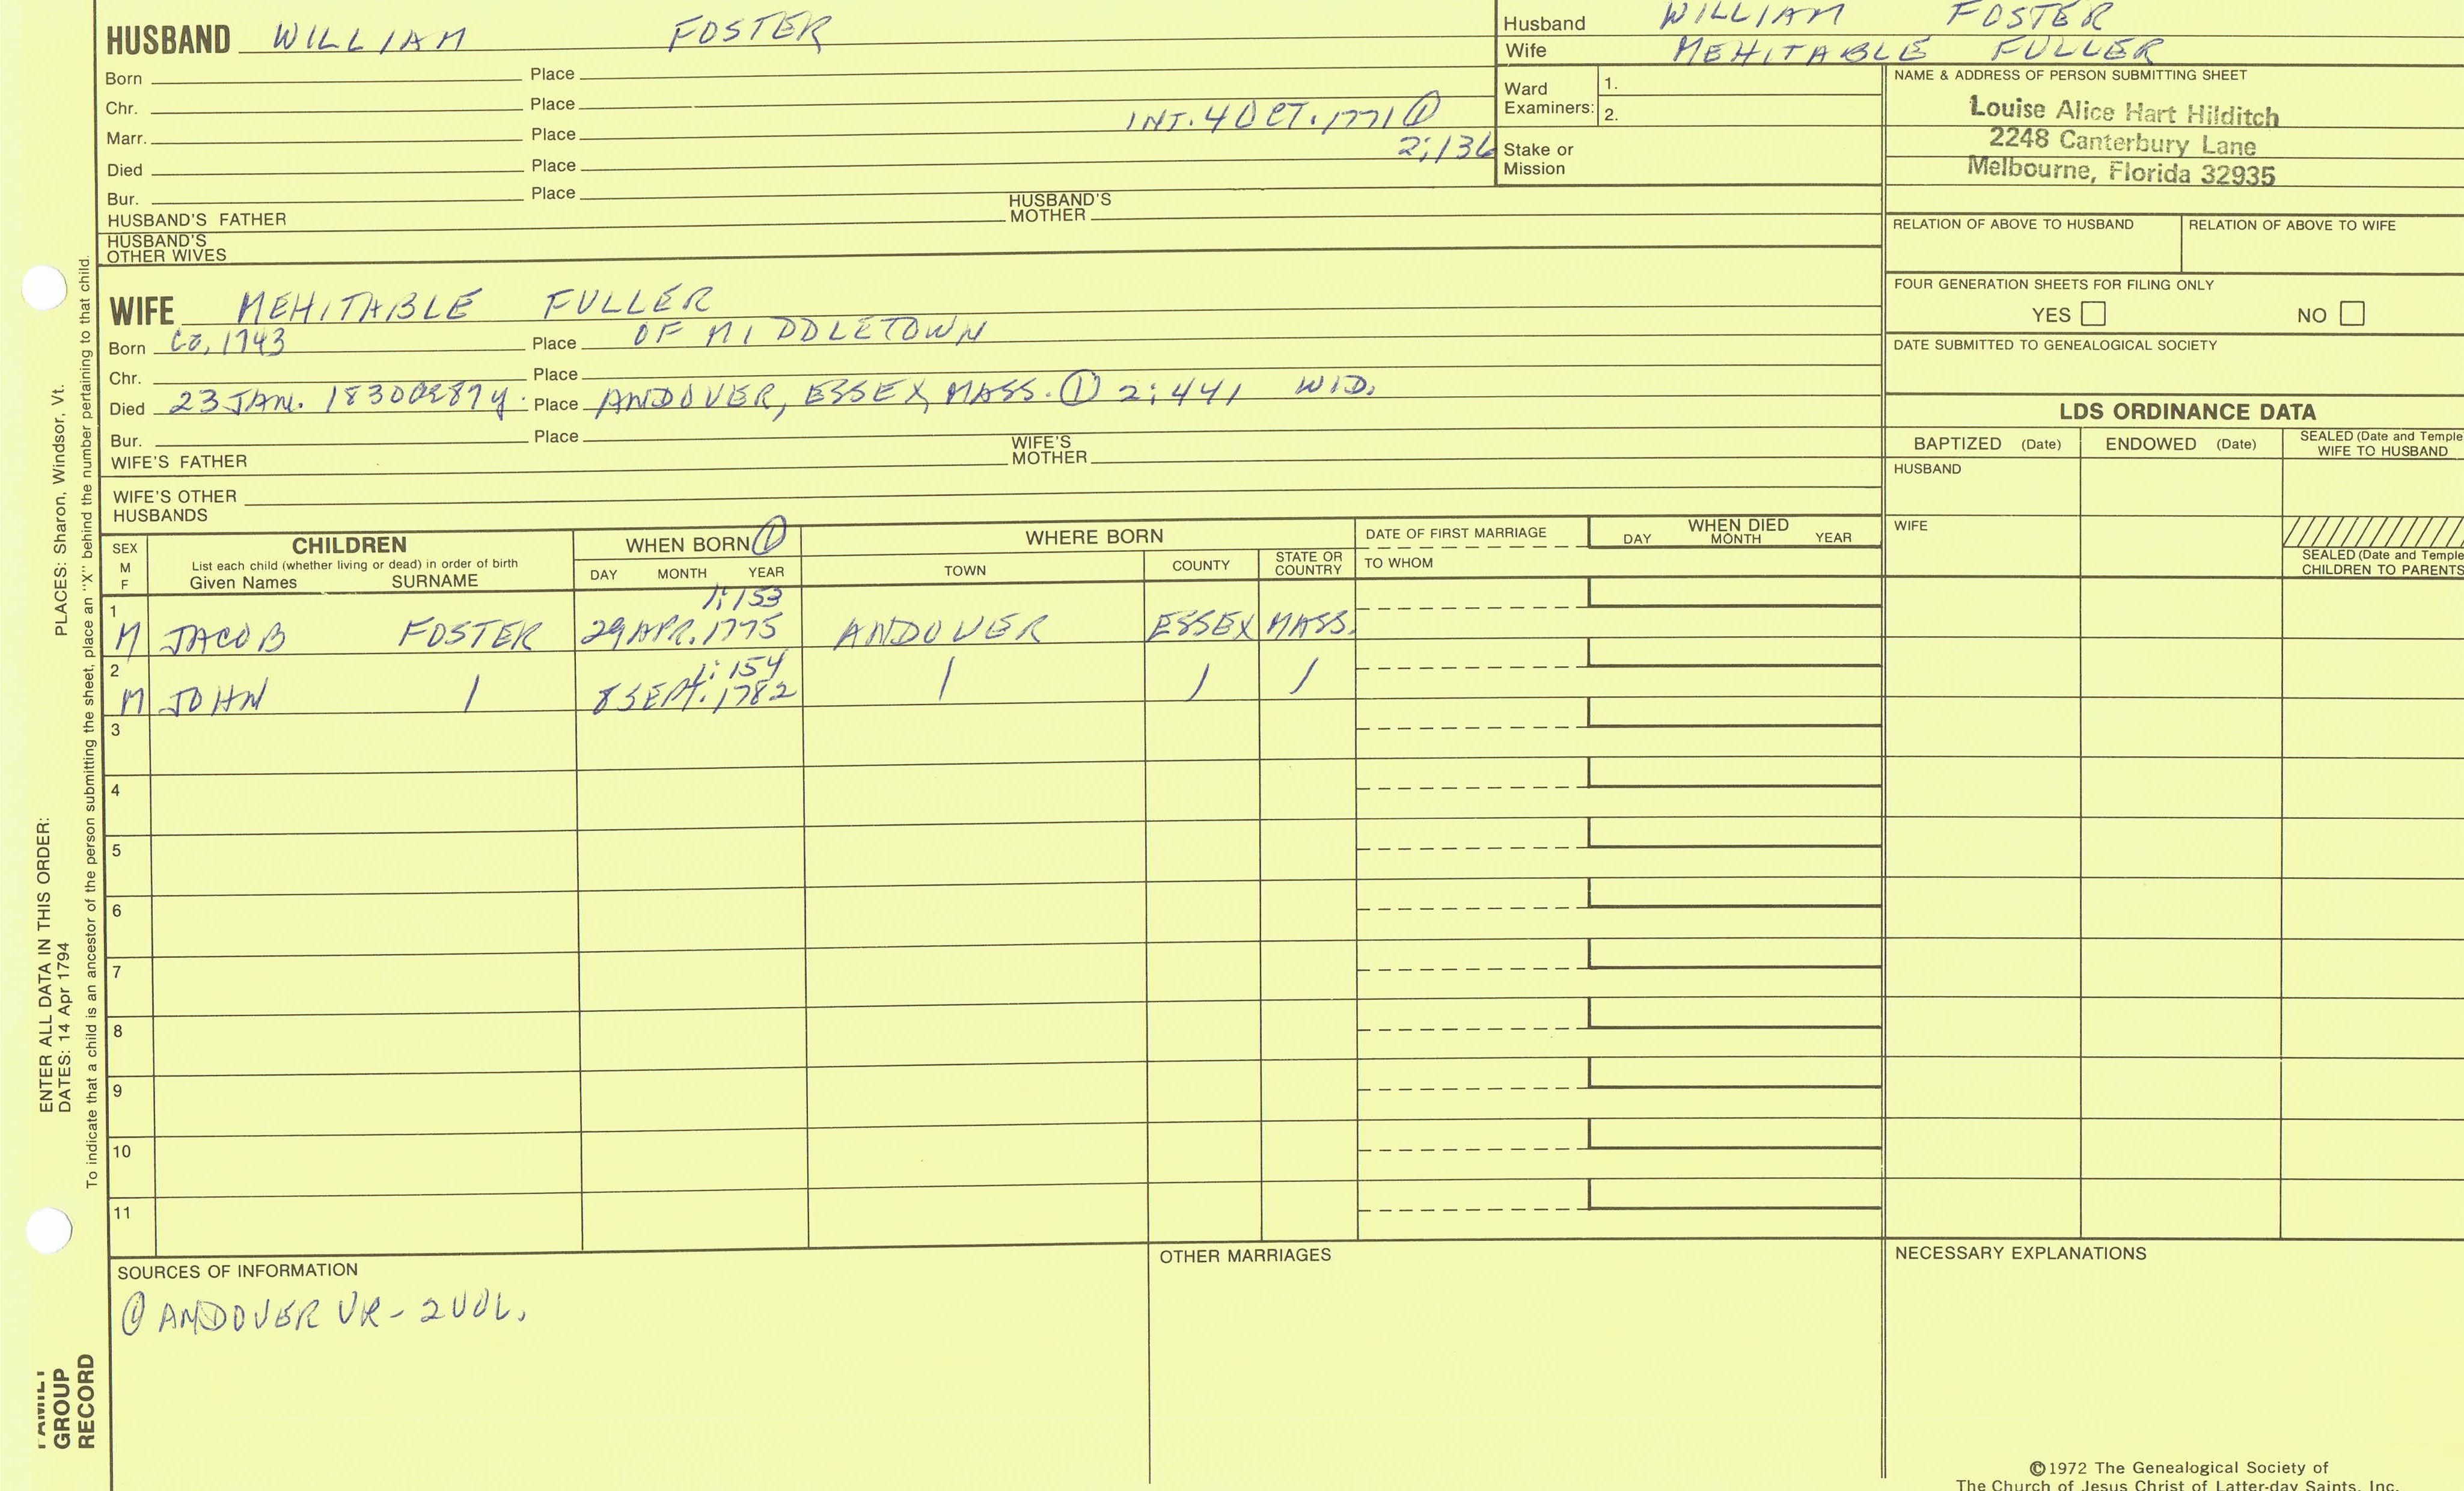 HUSBAND WILLIAM FOSTER
Born Place
Chr. Place
Marr. Place INT. 4 OCT. 1771 ① 2:136
Died Place
Bur. Place
HUSBAND'S FATHER HUSBAND'S MOTHER
HUSBAND'S OTHER WIVES
Husband WILLIAM FOSTER
Wife MEHITABLE FULLER
Ward Examiners: 1.
2.
Stake or Mission
NAME & ADDRESS OF PERSON SUBMITTING SHEET
Louise Alice Hart Hilditch
2248 Canterbury Lane
Melbourne, Florida 32935
RELATION OF ABOVE TO HUSBAND RELATION OF ABOVE TO WIFE
FOUR GENERATION SHEETS FOR FILING ONLY
YES NO
DATE SUBMITTED TO GENEALOGICAL SOCIETY
WIFE MEHITABLE FULLER
Born Ca, 1743 Place OF MIDDLETOWN
Chr. Place
Died 23 JAN. 1830 87y. Place ANDOVER, ESSEX, MASS. ① 2:441 WID.
Bur. Place
WIFE'S FATHER WIFE'S MOTHER
WIFE'S OTHER HUSBANDS
LDS ORDINANCE DATA
BAPTIZED (Date) ENDOWED (Date) SEALED (Date and Temple WIFE TO HUSBAND
HUSBAND
WIFE
SEALED (Date and Temple CHILDREN TO PARENTS
SEX M F
CHILDREN
List each child (whether living or dead) in order of birth
Given Names SURNAME
WHEN BORN ①
DAY MONTH YEAR
WHERE BORN
TOWN COUNTY STATE OR COUNTRY
DATE OF FIRST MARRIAGE
TO WHOM
WHEN DIED
DAY MONTH YEAR
1 1:153
M JACOB FOSTER 29 APR. 1775 ANDOVER ESSEX MASS.
2 1:154
M JOHN / 8 SEPT. 1782 / / /
3
4
5
6
7
8
9
10
11
SOURCES OF INFORMATION
① ANDOVER VR - 2 VOL.
OTHER MARRIAGES
NECESSARY EXPLANATIONS
©1972 The Genealogical Society of
The Church of Jesus Christ of Latter-day Saints, Inc.
ENTER ALL DATA IN THIS ORDER:
DATES: 14 Apr 1794 PLACES: Sharon, Windsor, Vt.
To indicate that a child is an ancestor of the person submitting the sheet, place an "X" behind the number pertaining to that child.
FAMILY
GROUP
RECORD